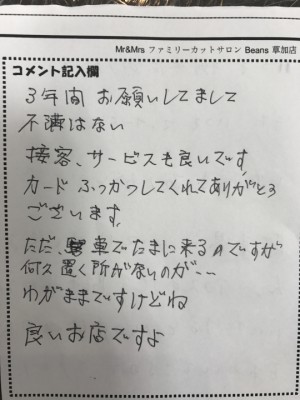 Mr&Mrs ファミリーカットサロン Beans 草加店
コメント記入欄
3年間 お願いしてまして
不満はない
接客、サービスも良いです、
カード ふっかつしてくれてありがとう
ございます、
ただ、車でたまに来るのですが
何久置く所がないのが、、
わがままですけどね
良いお店ですよ